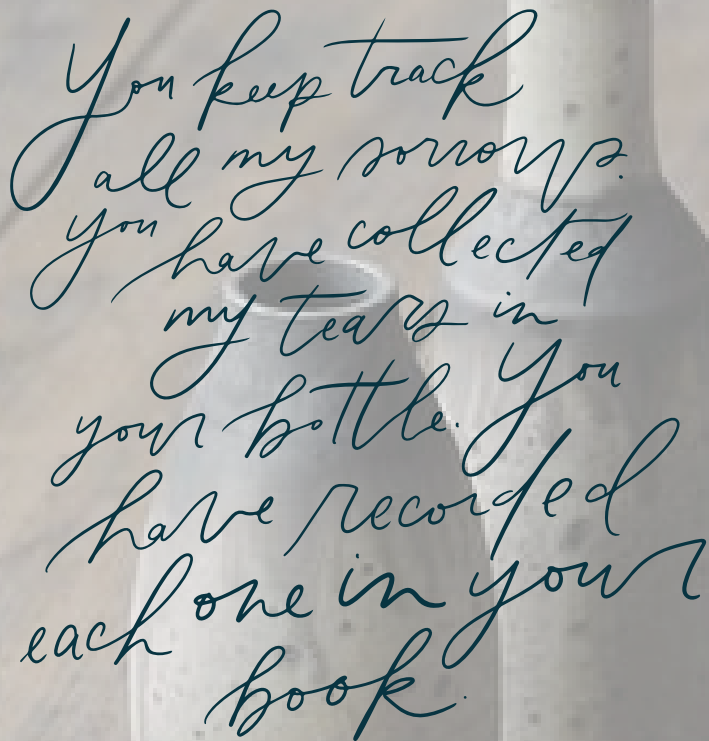 You keep track
all my sorrows.
you have collected
my tears in
your bottle. You
have recorded
each one in your
book.